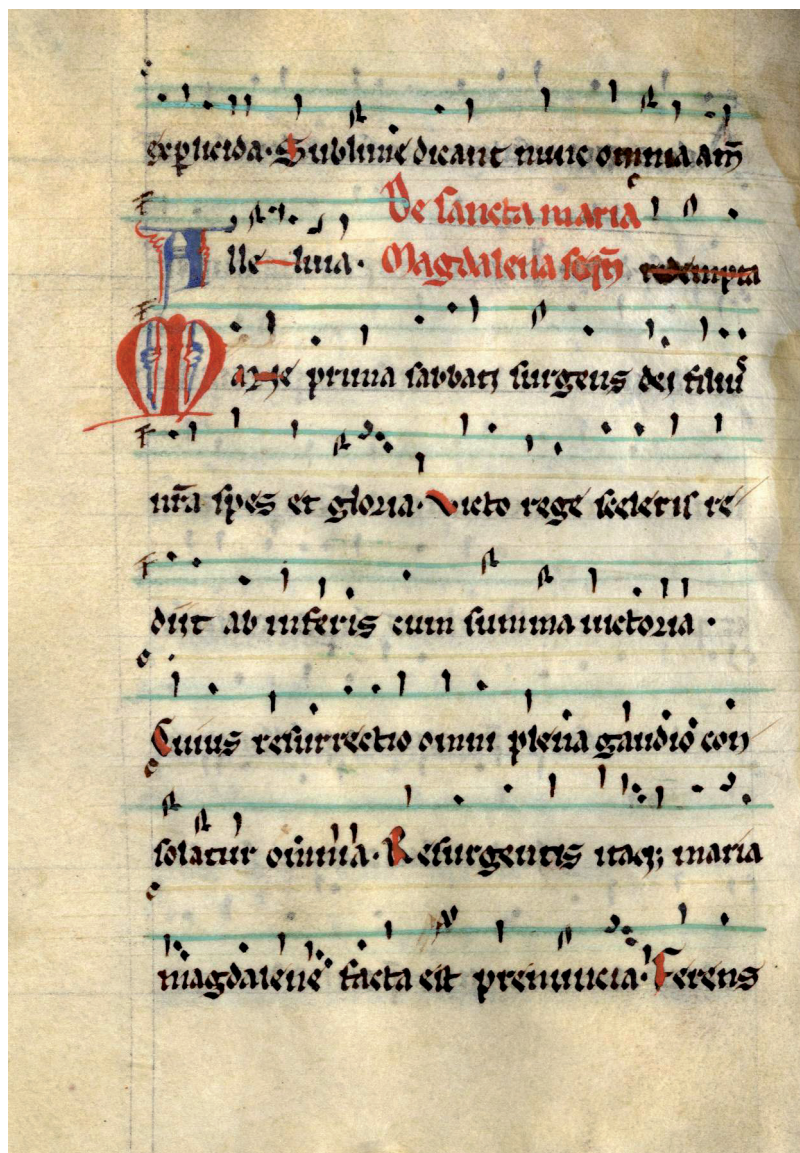 explicida. Sublime dicant nunc omnia am̃
De sancta maria
Alleluia. Magdalena seqm̃ redempta
Mane prima sabbati surgens dei filiꝰ
nr̃a spes et gloria. Victo rege sceleris re
diit ab inferis cum summa uictoria.
Cuius resurrectio omni plena gaudio con
solatur om̃nia. Resurgentis itaqꝫ maria
magdalene facta est prenuncia. Ferens